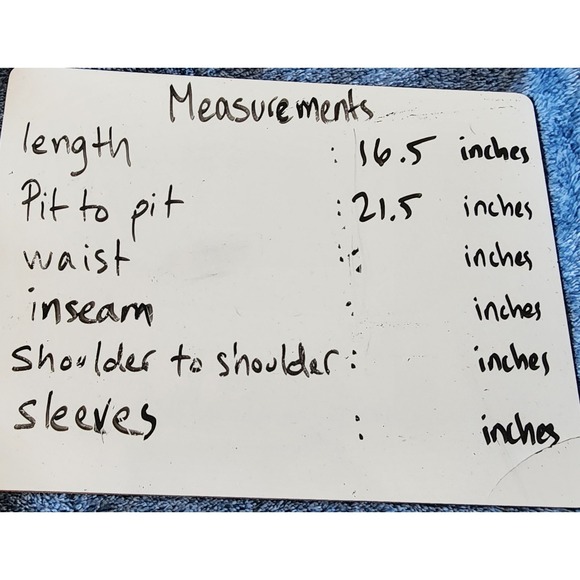 Measurements
length : 16.5 inches
Pit to pit : 21.5 inches
waist : inches
inseam : inches
Shoulder to shoulder : inches
sleeves : inches